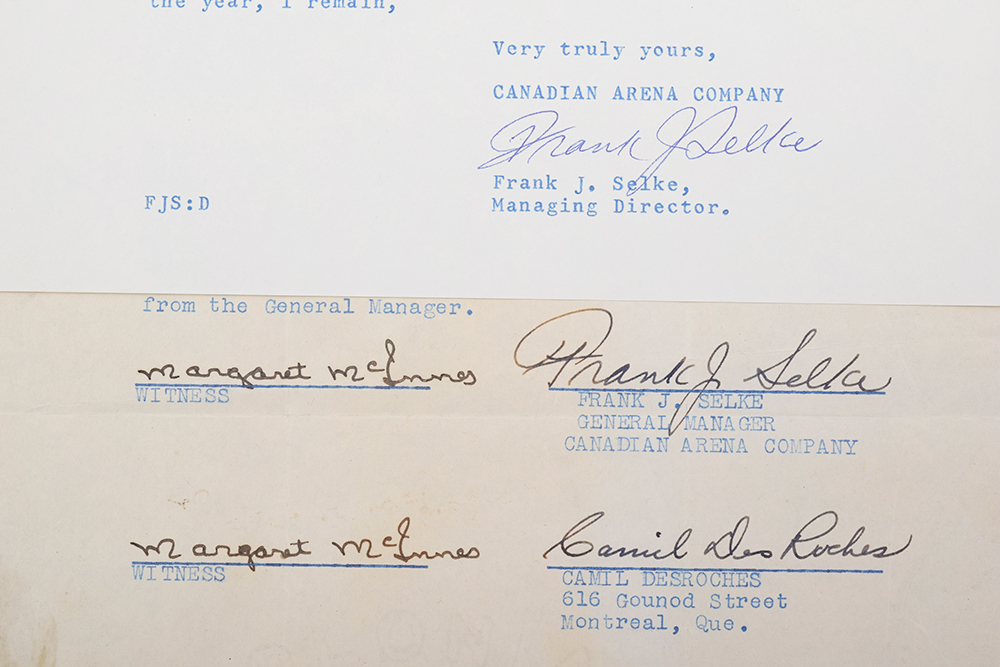 the year, I remain,
Very truly yours,
CANADIAN ARENA COMPANY
Frank J. Selke
Frank J. Selke,
FJS:D
Managing Director.
from the General Manager.
Margaret McInnes
Frank J. Selke
WITNESS
FRANK J. SELKE
GENERAL MANAGER
CANADIAN ARENA COMPANY
Margaret McInnes
Camil Des Roches
WITNESS
CAMIL DESROCHES
616 Gounod Street
Montreal, Que.